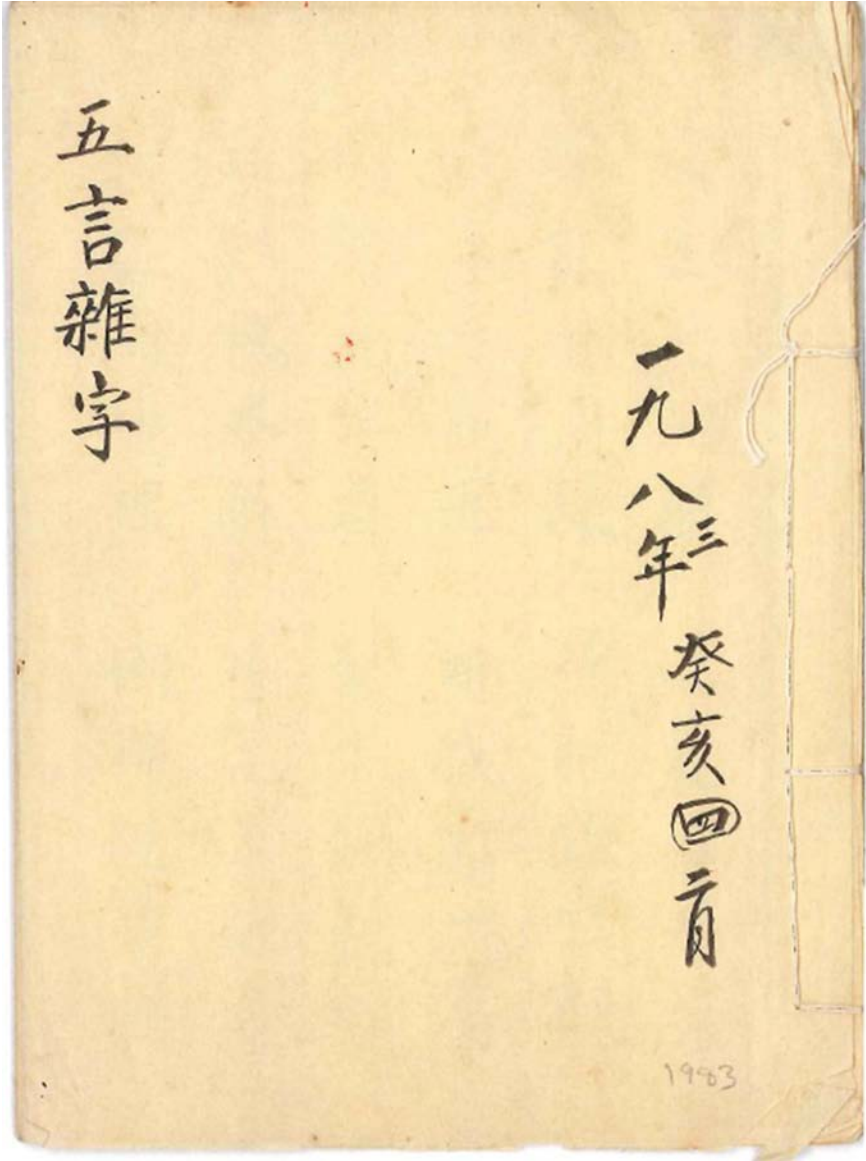 一九八三年癸亥四二月
五言雜字
1983